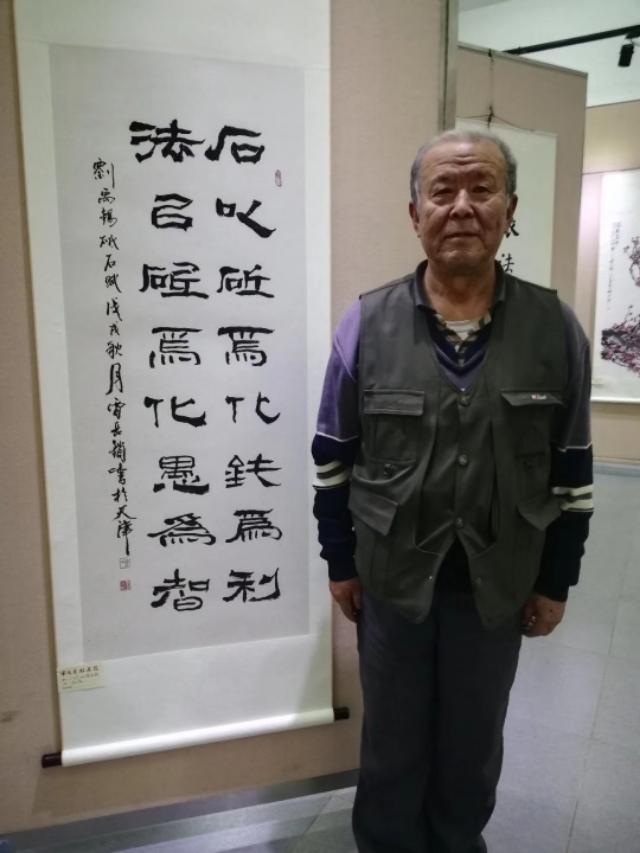 石以砥焉化鈍爲利
法㠯砥焉化愚為智
劉禹錫砥石賦戊戌秋月書於天津